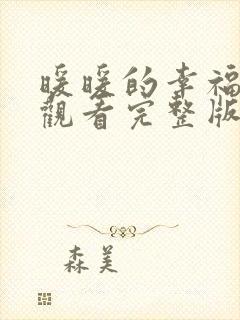 暖暖的幸福
觀看完整版
森美